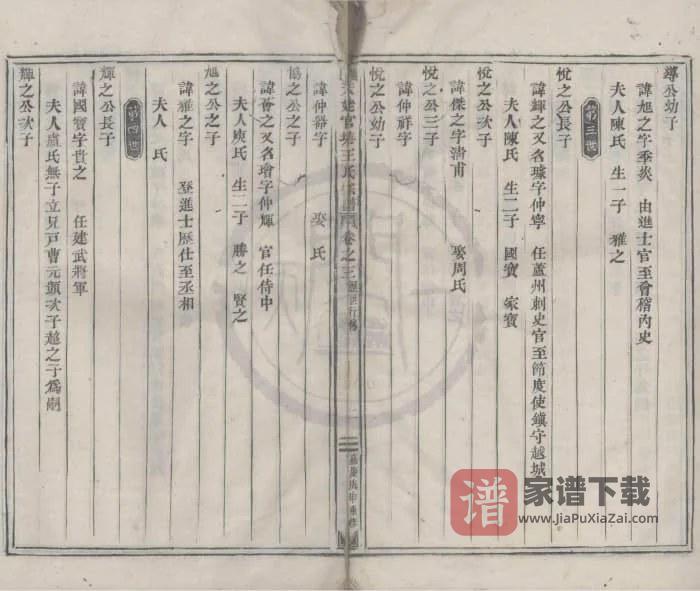 公幼子
諱旭之字季炎　由進士官至會稽內史
夫人陳氏　生一子　雅之
第三世
悅之公長子
諱輝之又名璩字仲寧　任蘆州刺史官至節度使鎮守越城
夫人陳氏　生二子　國寶　家寶
悅之公次子
諱傑之字清甫　娶周氏
悅之公三子
諱仲祥字
悅之公幼子
諱仲器字　娶　氏
官塘王氏宗譜　卷之三
三
重修
之公子
諱薈之又名璯字仲輝　官任侍中
夫人庾氏　生二子　勝之　賢之
旭之公之子
諱雅之字　登進士歷仕至丞相
夫人　氏
第四世
輝之公長子
諱國寶字貴之　任建武將軍
夫人盧氏無子立兄戶曹元顯次子越之子為嗣
輝之公次子
谱
家谱下载
www.JiaPuXiaZai.com